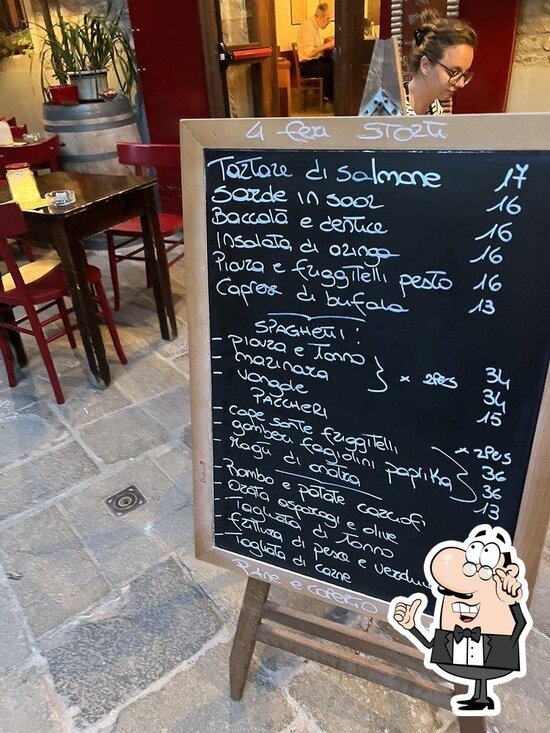 4 feri STORTI
Tartare di salmone 17
Sarde in saor 16
Baccalà e dentice 16
Insalata di piovra 16
Piovra e friggitelli pesto 16
Caprese di bufala 13
SPAGHETTI:
- piovra e Tonno
- mazinara } x 2PERS 34
- vongole 34
PACCHERI 15
- cape sante friggitelli x 2PERS
- gamberi fagiolini paplika 36
- Ragù di anatra 36
13
- Rombo e patate carciofi
- Orata asparagi e olive
- Tagliata di Tonno
- frittura di pesce e verdure
- Tagliata di carne
Pane e coperto